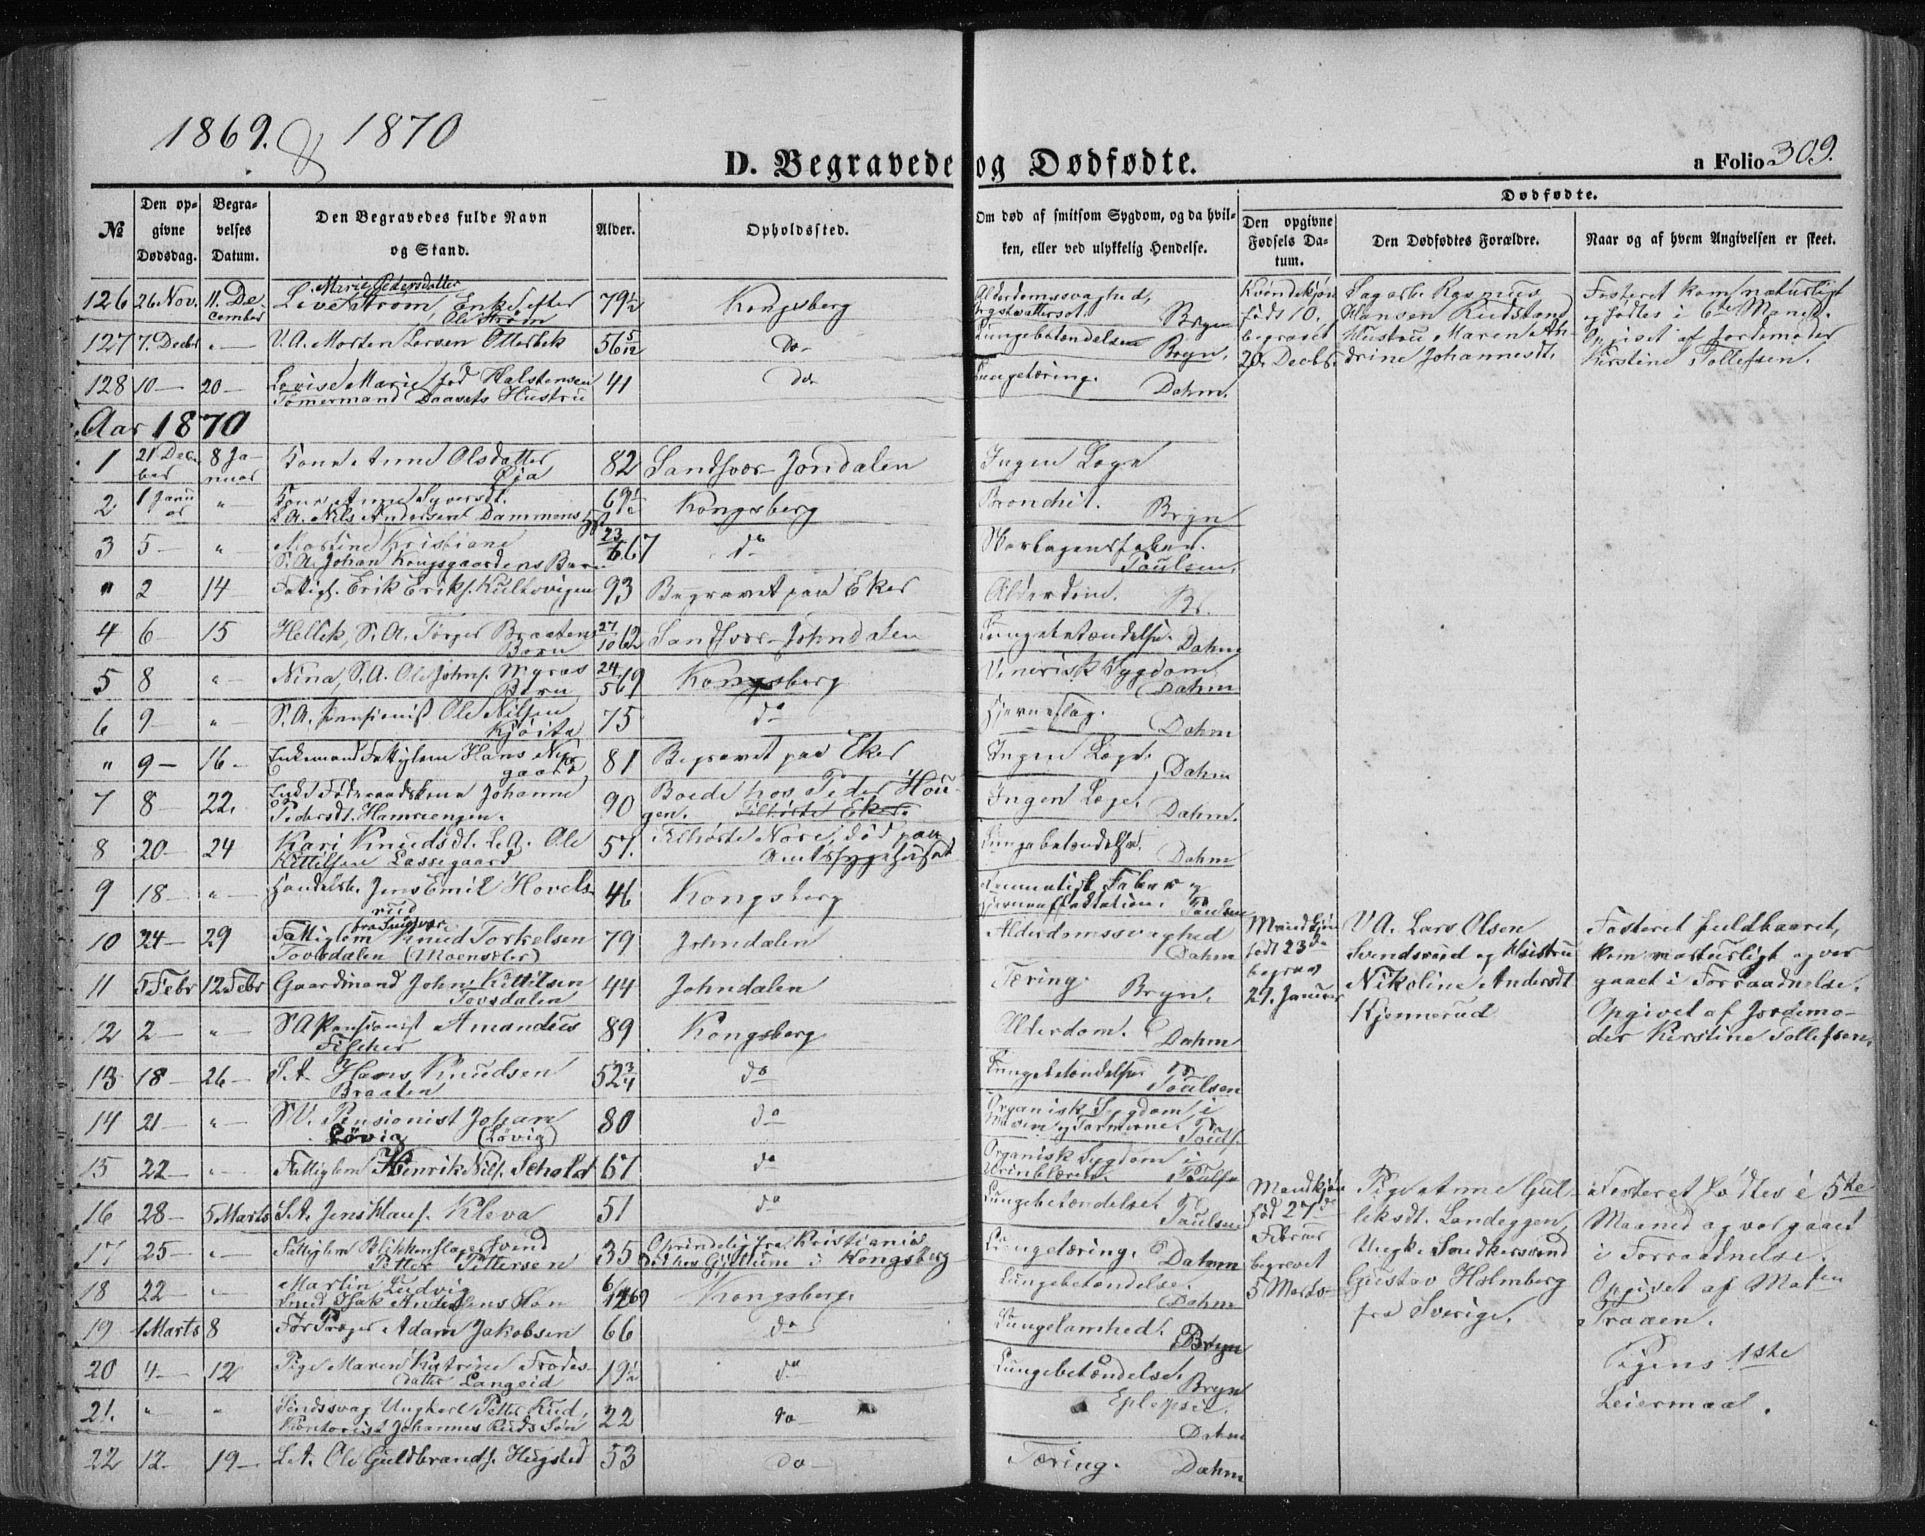 1869. & 1870
D. Begravede og Dødfødte.
a Folio 309.
№
Den opgivne Dødsdag.
Begravelses Datum.
Den Begravedes fulde Navn og Stand.
Alder.
Opholdssted.
Om død af smitsom Sygdom, og da hvilken, eller ved ulykkelig Hendelse.
Dødfødte.
Den opgivne Fødsels Datum.
Den Dødfødtes Forældre.
Naar og af hvem Angivelsen er skeet.
126 26 Nov. 11. December Marie Pedersdatter Enke efter Ole Strøm 79½ Kongsberg Alderdomssvaghed, Bryn
127 7. Decbr " V.A. Morten Larsen Otterbek 56 5/12 do Lungebetændelse Bryn.
128 10 — 20 — Lovise Marie fød Halstensen Tømermand Hustru 41 do Lungetæring. Dahm.
født 10. begravet 20. Decbr.
Hansen Rudstrand Hustru Maren Andrine Johannesdt.
Fosteret kom naturligt og fødtes i 6te Maned. Opgivet af Jordemoder Kirstine Tollefsen.
Aar 1870
1 21 December 8 Januar Kone Anne Olsdatter 82 Sandsvær Jondalen Ingen Læge
2 1 Januar " Kone Anne Syversdt. S.A. Nils Andersen Dammens 69½ Kongsberg Bronchit. Bryn
3 5 — " Martine Kristiane S.A. Johan Kongsgaardens Barn 23/6 67 do Paulsen.
" 2 14 Fattigl. Erik Eriks. 93 Begravet paa Eker Alderdom. Br.
4 6 — 15 Hellek, S.A. Torger Braatens Barn 27/10 62 Sandsvær Johndalen Lungebetændelse. Dahm
5 8 " Nina, S.A. Ole Johns. Myras Barn 24/5 69 Kongsberg Venerisk Sygdom Dahm
6 9 — " S.A. Pensionist Ole Nilsen 75 do Hjerneslag. Dahm
" 9 — 16 — Enkemand Fattiglem Hans 81 Begravet paa Eker Ingen Læge. Dahm
7 8 — 22. Føderaadskone Johanne Pedersdt. Hamrengen. 90 Boede hos Peder Hougen. Ingen Læge. Dahm.
8 20 — 24 Kari Knudsdt. L.A. Ole Kittilsen Lassegaard 57. Tilhørte Nore, død paa Amtssygehuset Lungebetændelse. Dahm
9 18 — " Handelsb. Jens Emil Hovelsrud 46 Kongsberg Reumatisk Feber og Paulsen
10 24 — 29 Fattiglem Knud Torkelsen Tovsdalen 79 Johndalen Alderdomssvaghed Dahm
11 5 Febr 12 Febr Gaardmand John Kittilsen Tovsdalen 44 Johndalen Tæring. Bryn.
12 2 — " S A Pensionist Amandus 89 Kongsberg Alderdom. Dahm
Mandkjøn født 23de begrav 29. Januar
V.A. Lars Olsen Svendsrud og Hustru Nikoline Andersdt Kjennerud
Fosteret fuldbaaret, kom naturligt og var gaaet i Forraadnelse. Opgivet af Jordemoder Kirstine Tollefsen.
13 18 — 26 — S.A. Hans Knudsen Braaten 52¾ do Lungebetændelse Paulsen
14 21 — " S.V. Pensionist Johan Løvig (Løvig) 80 do Organisk Sygdom i Maven og Tarmerne. Pauls.
15 22 — " Fattiglem Henrik Nils. Schald 67 do Organisk Sygdom i Urinblæren. Paulsn
16 28 — 5 Marts S.A. Jens Klaus. Kleva 51 do Lungebetændelse. Paulsen
17 25 — " Fattiglem Blikkenslager Svend Petter Pettersen 35 Oprindelig fra Kristiania i Kongsberg Lungetæring. Dahm
18 22 — " Martin Ludvig Smed Isak Andersens Søn 6/12 69 Kongsberg. Lungebetændelse. Dahm
Mandkjøn født 27de Februar begravet 5 Marts
Pige Anne Gulleksdt. Landeggen, Ungk. Smedkersvend Gustav Holmberg fra Sverige.
Fosteret fødtes i 5te Maaned og var gaaet i Forraadnelse. Opgivet af Maten Fraaen. Pigens 1ste Leiermaal.
19 1 Marts 8 Adam Jakobsen 66 do Lungelamhed. Bryn
20 4 — 12 Pige Maren Katrine Frodesdatter Langeid 19½ do Lungebetændelse. Bryn
21. " " Sindssvag Ungkarl Petter Rud, Kontorist Johannes Ruds Søn 22 do Eplepsie. Dahm
22 12 — 19 — S.A. Ole Guldbrands. Hugsted 53 do Tæring. Dahm